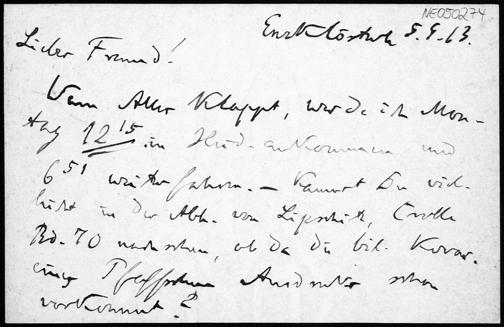 NE050274
Enzklösterle 5.9.13.
Lieber Freund!
Wenn Alles klappt, werde ich Mon-
tag 12 15 in Heid. ankommen und
6 51 weiterfahren. – Kannst Du viel-
leicht in der Abh. von Lipschitz, Crelle
Bd. 70 nachsehen, ob da die bil. Kovar.
eines Pfaffschen Ausdrucks schon
vorkommt?